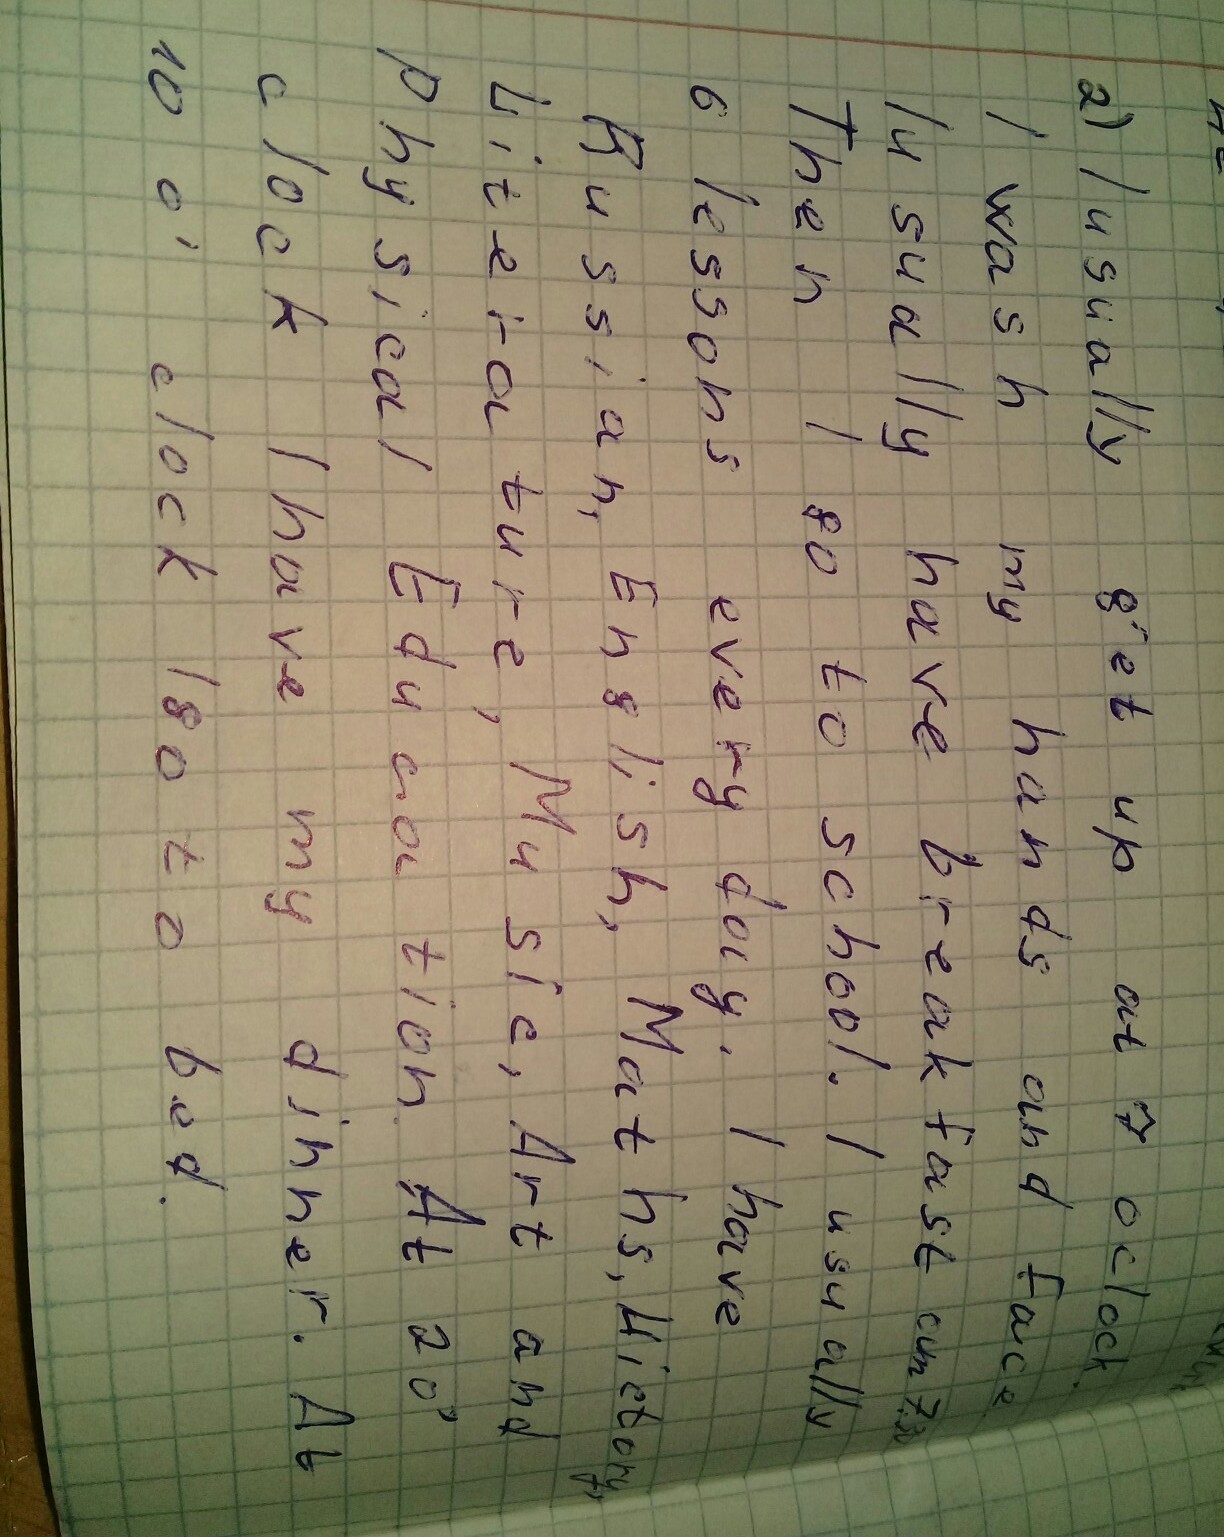 2) I usually get up at 7 oclock.
I wash my hands and face.
I usually have breakfast
Then I go to school. I usually
6 lessons every day. I have
Russian, English, Maths, History,
Literature, Music, Art and
Physical Education. At 20'
clock I have my dinner. At
10 o' clock I go to bed.